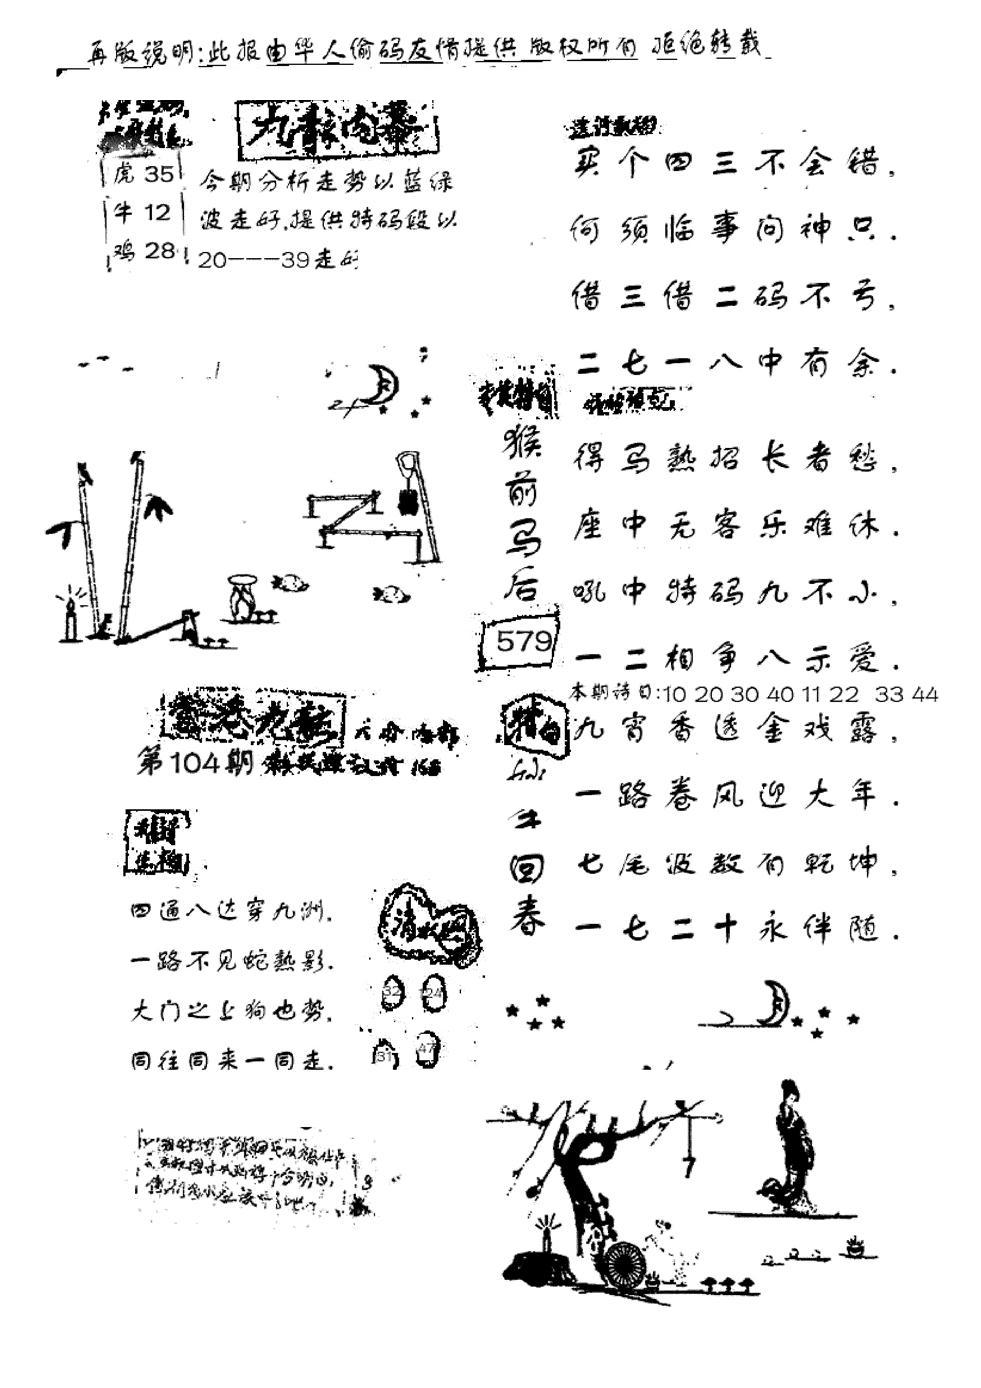 再版说明:此报由华人偷码友情提供 版权所有 拒绝转载
九龍内幕
虎 35
牛 12
鸡 28
今期分析走势以蓝绿
波走好.提供特码段以
20---39走好
买个四三不会错,
何须临事问神只.
借三借二码不亏,
二七一八中有余.
猴前马后
579
得马熟招长者愁,
座中无客乐难休.
吼中特码九不小,
一二相争八示爱.
本期诗曰:10 20 30 40 11 22 33 44
九宵香透金戏露,
一路卷风迎大年.
七尾波数有乾坤,
一七二十永伴随.
牛回春
香港九龍
第104期
四通八达穿九洲.
一路不见蛇熟影.
大门之上狗也势.
同往同来一同走.
32 24
31 47